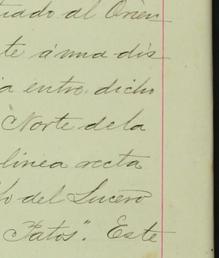 tuado al Orien
te á una dis
ia entre dicho
Norte de la
linea recta
lo del Lucero
Patos". Este